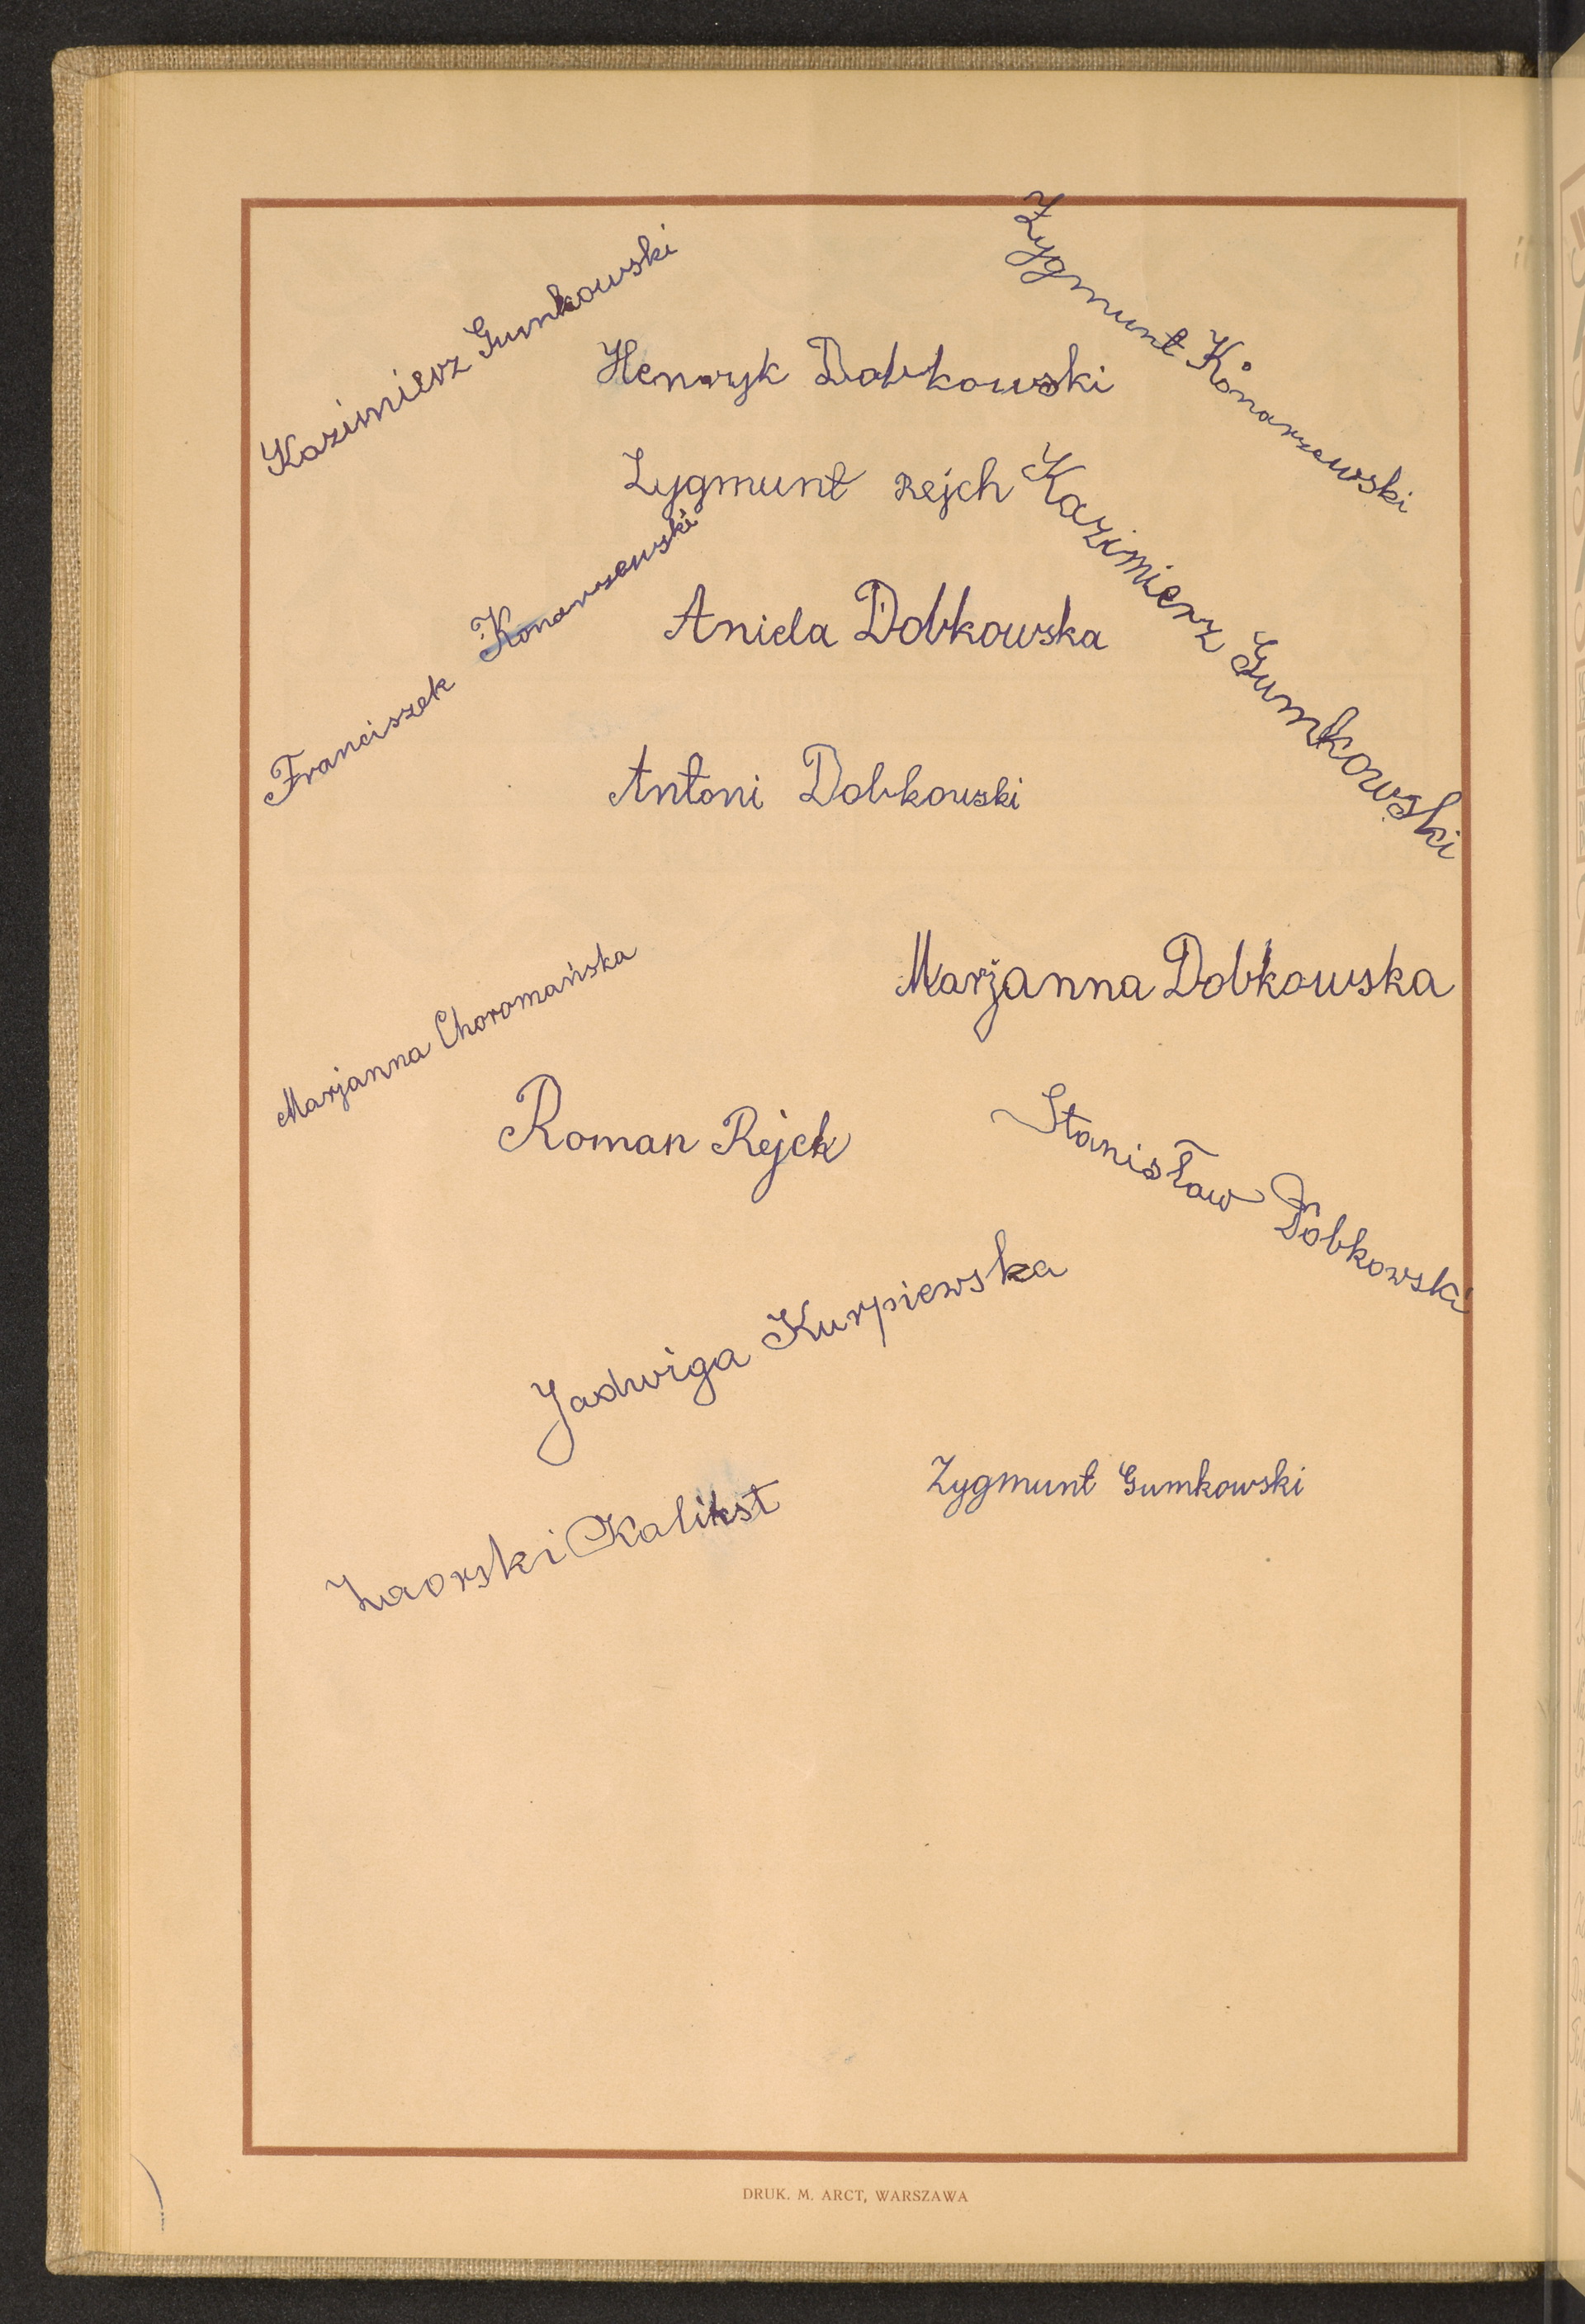 Kazimierz Gumkowski
Zygmunt Konarzewski
Henryk Dobkowski
Zygmunt Rejch
Kazimierz Gumkowski
Franciszek Konarzewski
Aniela Dobkowska
Antoni Dobkowski
Marjanna Choromańska
Marjanna Dobkowska
Roman Rejch
Stanisław Dobkowski
Jadwiga Kurpiewska
Zygmunt Gumkowski
Zaorski Kalikst
DRUK. M. ARCT, WARSZAWA